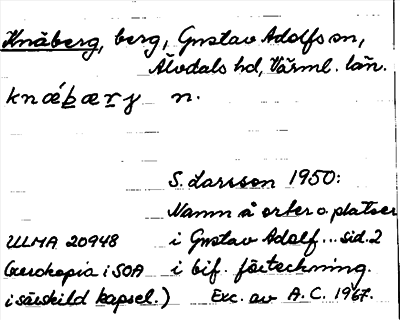 Knäberg, berg, Gustav Adolfs sn,
Älvdals hd, Värml. län.
knǽbærg n.
S. Larsson 1950:
Namn å orter o platser
ULMA 20948 i Gustav Adolf... sid. 2
(xerokopia i SOA i bif. förteckning.
i särskild kapsel.) Exc. av A. C. 1967.